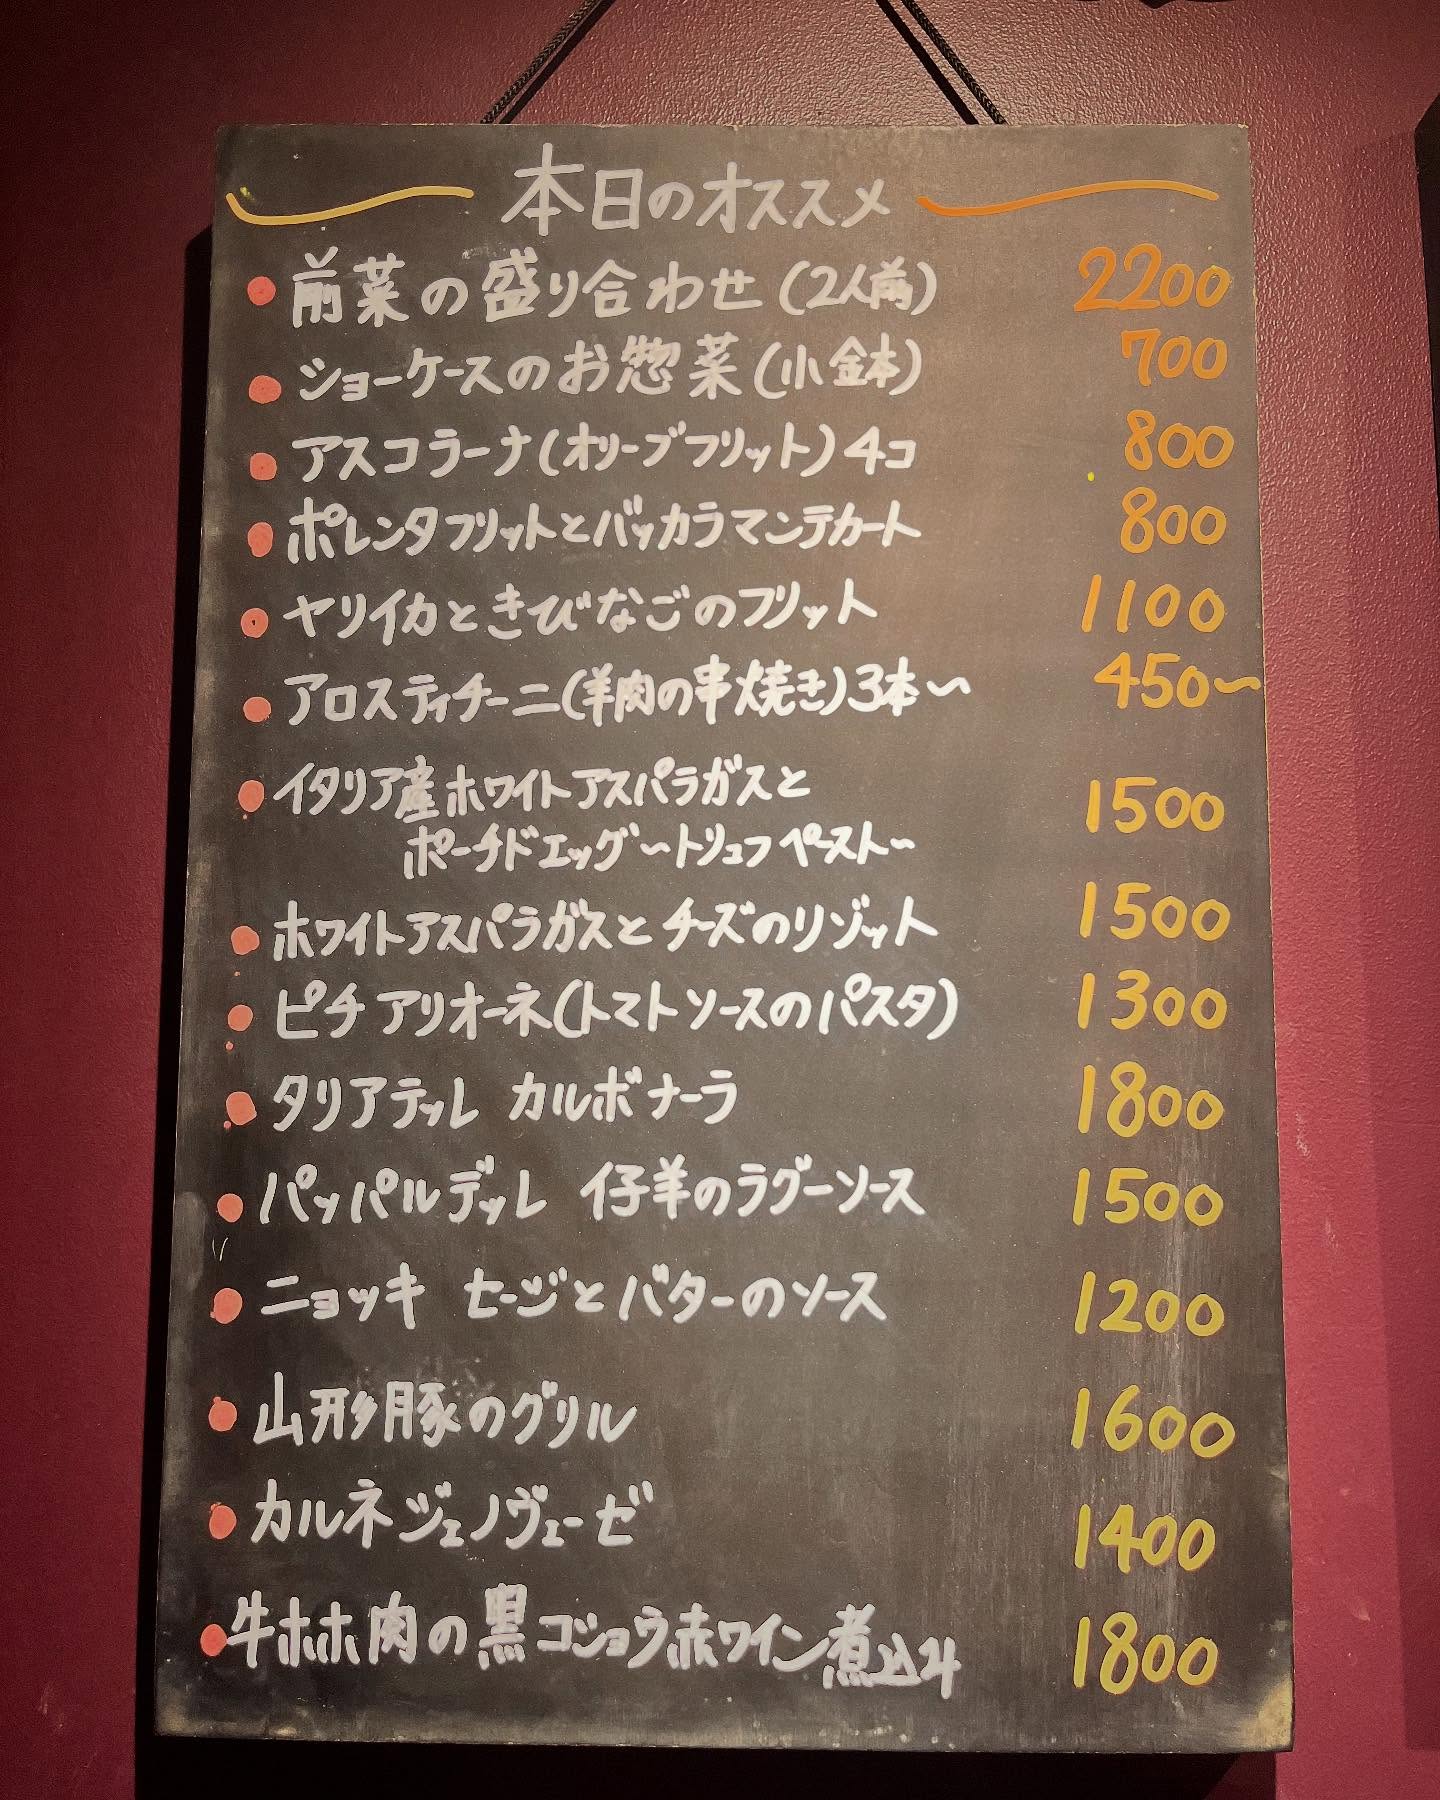 本日のオススメ
前菜の盛り合わせ(2人前) 2200
ショーケースのお惣菜(小鉢) 700
アスコラーナ(オリーブフリット)4コ 800
ポレンタフリットとバッカラマンテカート 800
ヤリイカときびなごのフリット 1100
アロスティチーニ(羊肉の串焼き)3本〜 450〜
イタリア産ホワイトアスパラガスと 1500
ポーチドエッグ〜トリュフペースト〜
ホワイトアスパラガスとチーズのリゾット 1500
ピチ アリオーネ(トマトソースのパスタ) 1300
タリアテッレ カルボナーラ 1800
パッパルデッレ 仔羊のラグーソース 1500
ニョッキ セージとバターのソース 1200
山形豚のグリル 1600
カルネジェノヴェーゼ 1400
牛ホホ肉の黒コショウ赤ワイン煮込み 1800